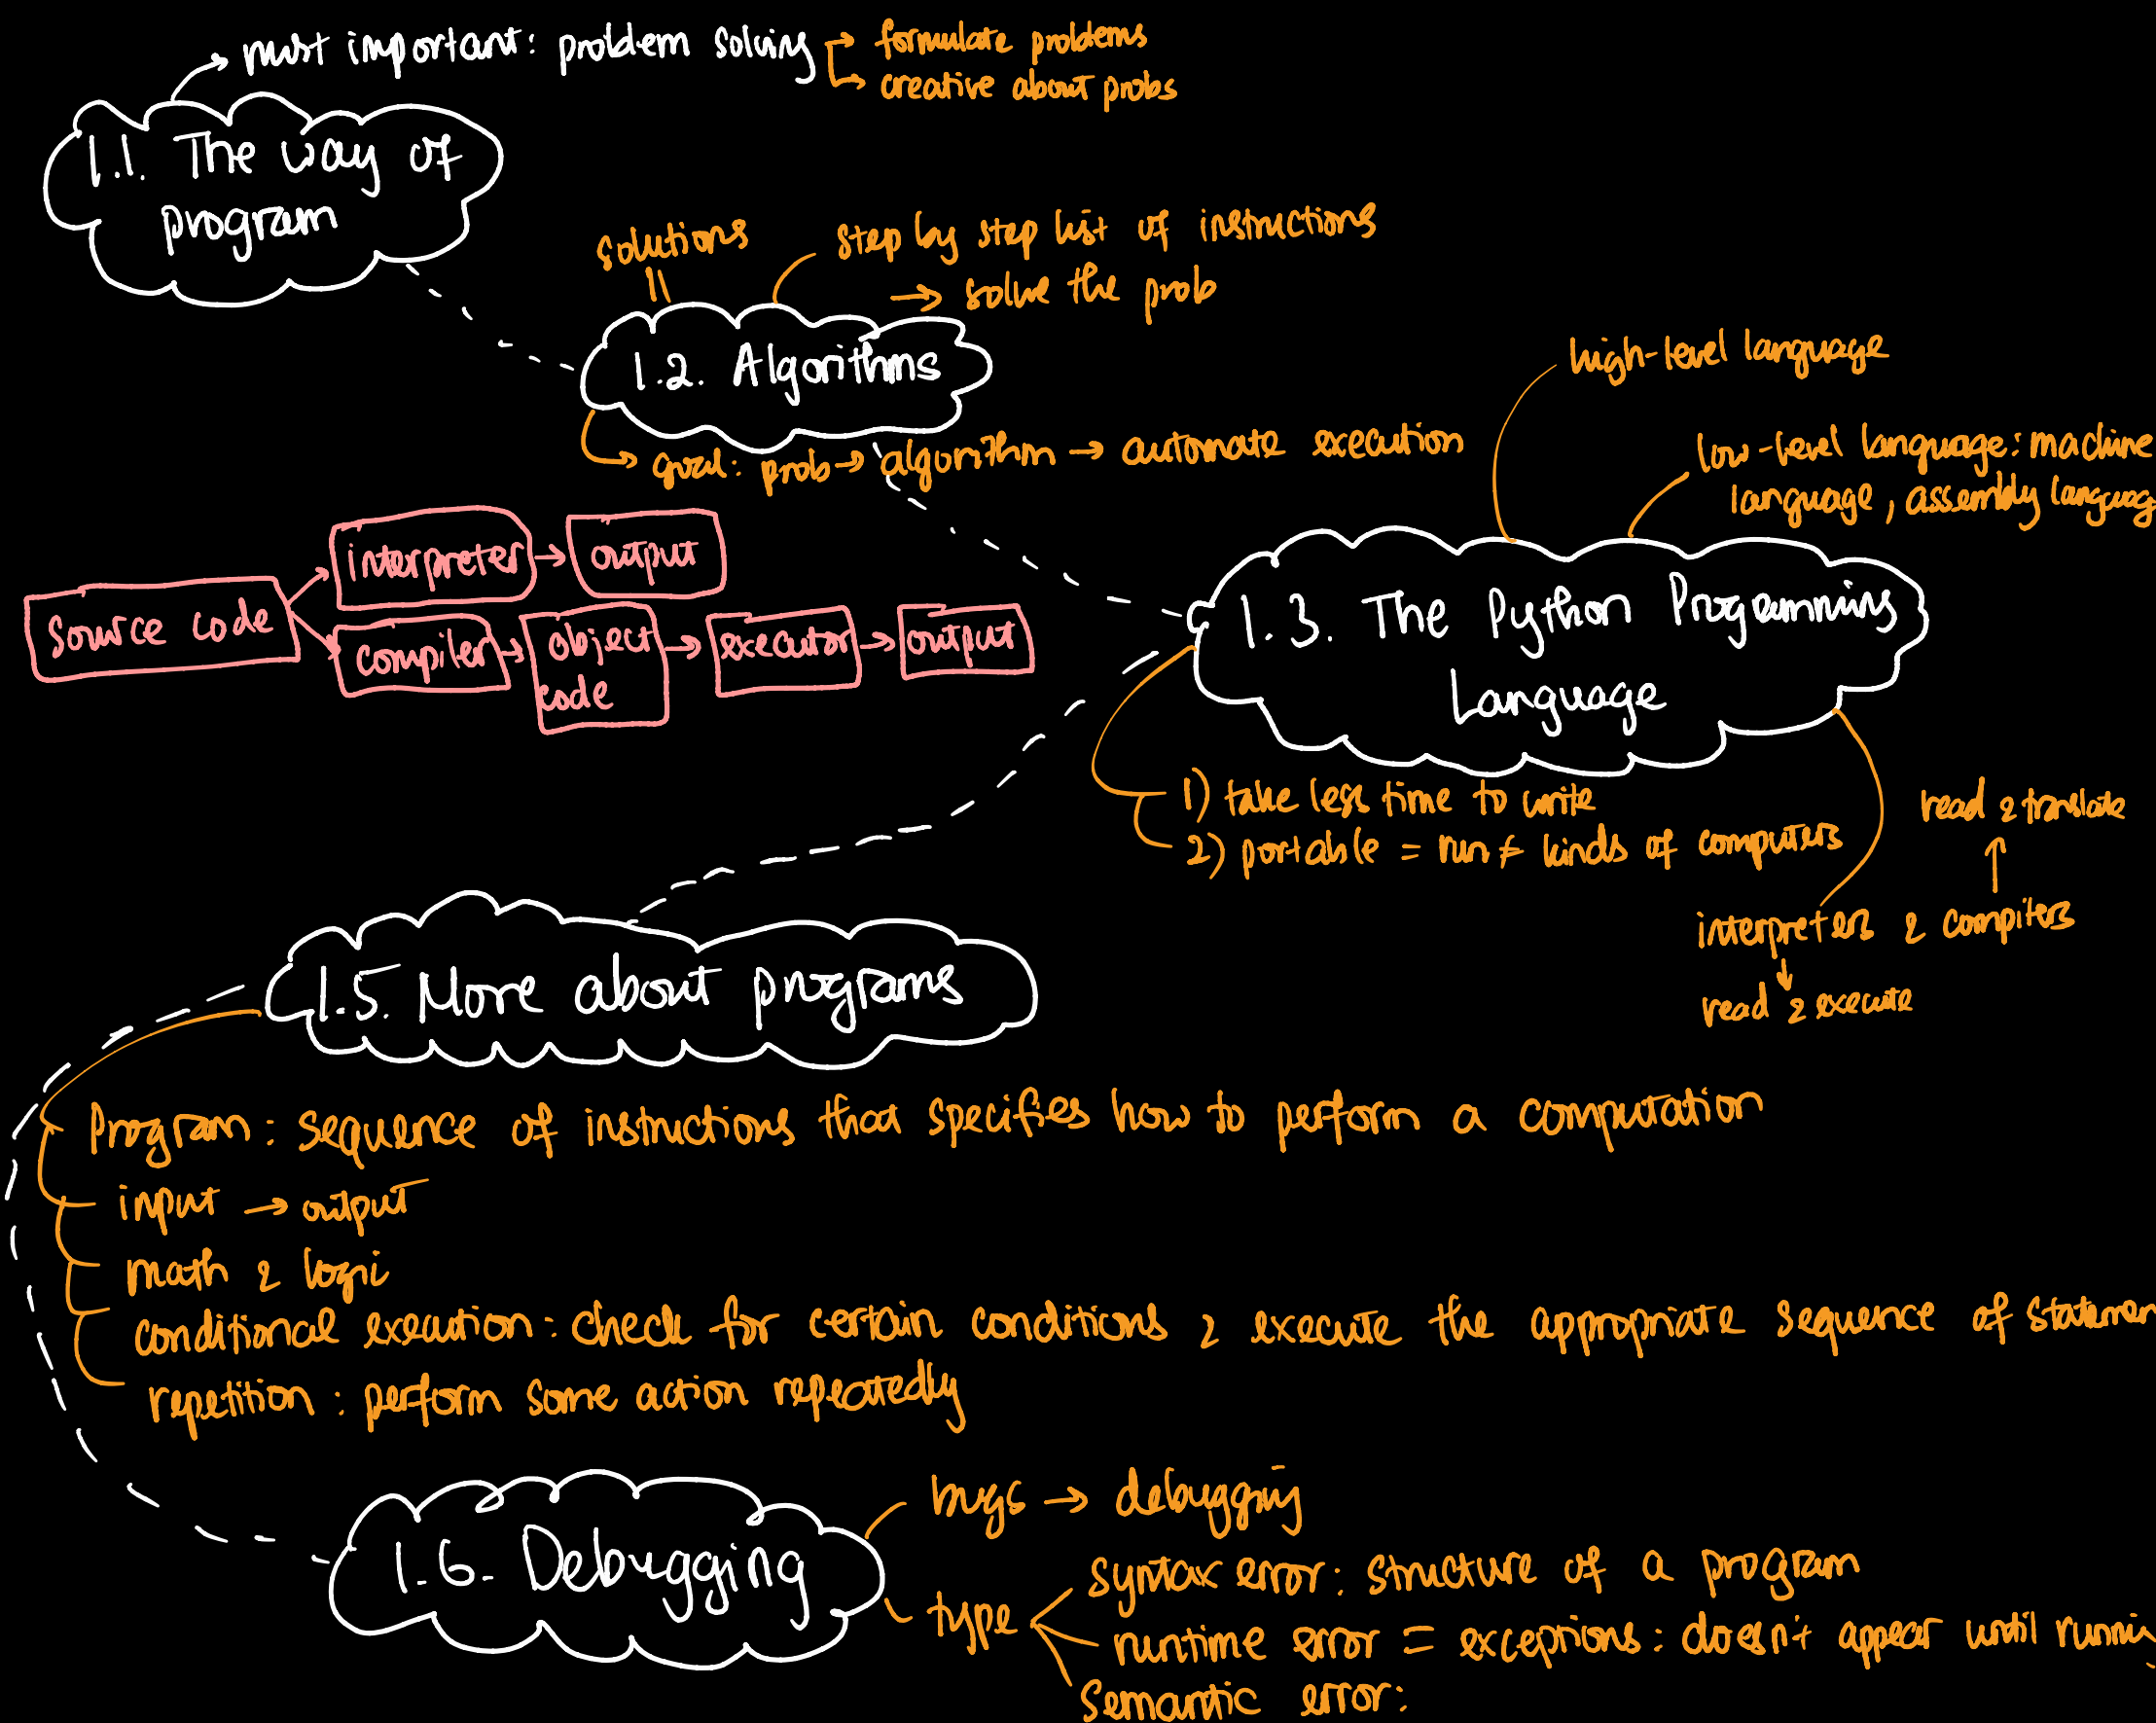 most important: problem solving
→ formulate problems
→ creative about probs
1.1. The way of
program
solutions
step by step list of instructions
→ solve the prob
1.2. Algorithms
goal: prob → algorithm → automate execution
high-level language
low-level language: machine
language, assembly languag
interpreter → output
source code
compiler → object → executor → output
code
1.3. The Python Programming
Language
1) take less time to write
2) portable = run ≠ kinds of computers
read & translate
interpreters & compilers
read & execute
1.5. More about programs
Program: sequence of instructions that specifies how to perform a computation
input → output
math & logic
conditional execution: check for certain conditions & execute the appropriate sequence of statemen
repetition: perform some action repeatedly
1.6. Debugging
bugs → debugging
type
syntax error: structure of a program
runtime error = exceptions: doesn't appear until runnin
semantic error: